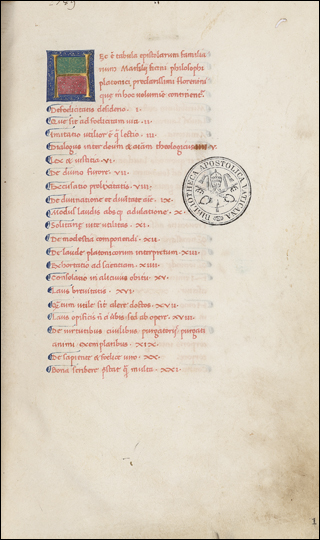 Hec ē tabula epistolarum familia
rium Marsilij ficini philosophi
platonici, preclarissimi florentini
que ī hoc volumine continent̄.
De foelicitatis desiderio · I ·
Que sit ad foelicitatem via · II ·
Imitatio utilior ē q̄ lectio · III ·
Dialogus inter deum & aīam theologicus · V ·
Lex & iustitia · VI ·
De divino furore · VII ·
VIII ·
De divinatione et divinitate aīe · IX ·
Modus laudis absq̨ adulatione · X ·
utilitas · XI ·
De modestia componendi · XII ·
De laude platonicorum interpretum · XIII ·
Exhortatio ad scientiam · XIIII ·
Consolatio in alicuius obitu · XV ·
Laus brevitatis · XVI ·
utile sit alere doctos · XVII ·
Laus opificis nō ī uerbis sed ab opere · XVIII ·
De virtutibus civilibus purgatorijs purgati
animi exemplaribus · XIX ·
De sapiente & foelice uiro · XX ·
Bona scribere prestat q̄ multa · XXI ·
BIBLIOTHECA APOSTOLICA VATICANA
1